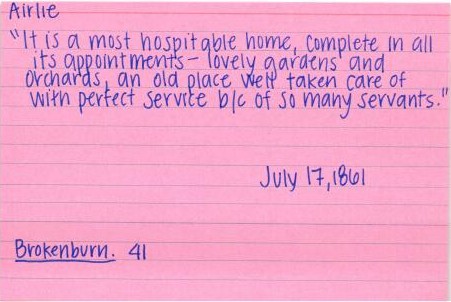 Airlie
"It is a most hospitable home, complete in all
its appointments - lovely gardens and
orchards, an old place well taken care of
with perfect service b/c of so many servants."
July 17, 1861
Brokenburn. 41